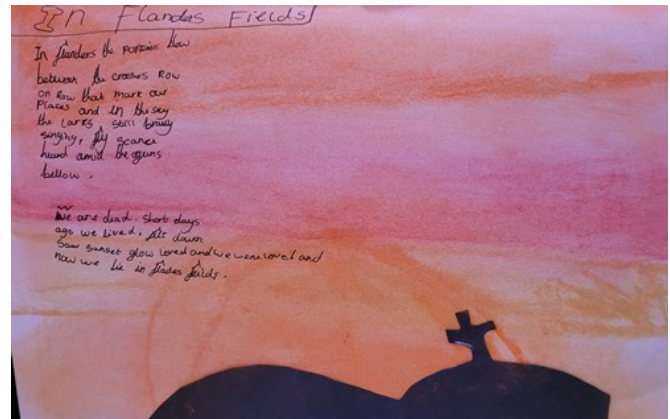 In Flandas Fields
In flanders the poppies blow
between the crosses Row
on Row that mark our
Places and in the sky
the larks, still bravly
singing, fly scarce
heard amid the guns
bellow.
We are dead. short days
ago we lived, felt dawn
Saw sunset glow loved and we were loved and
now we lie in flades feilds.